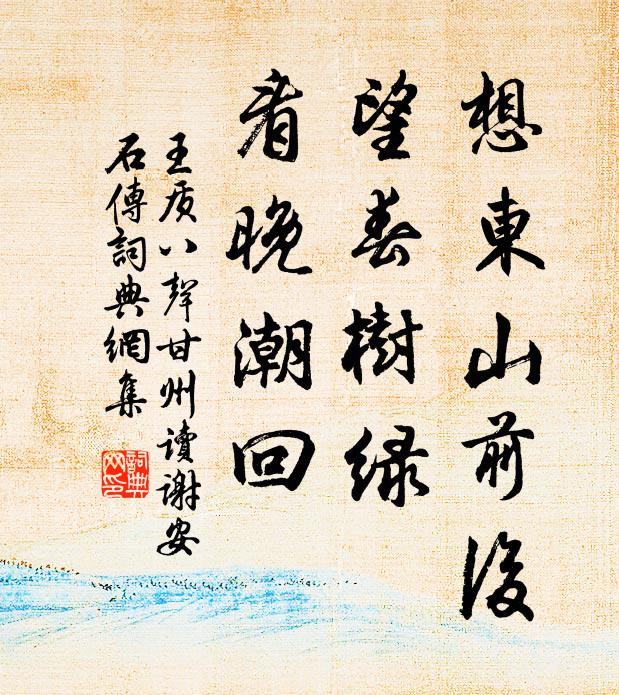 想東山前後
望春樹綠
看晚潮回
王质八聲甘州讀謝安
石傳詞典網集
詞典
网印